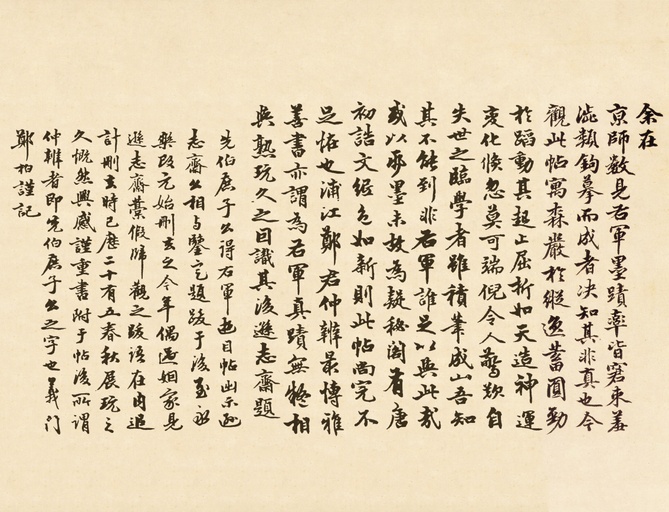 余在
京師數見右軍墨蹟率皆窘束羞
澁類鉤摹而成者决知其非真也今
觀此帖寓森嚴於縱逸蓄圓勁
於蹈動其起止屈折如天造神運
变化倏忽莫可端倪令人驚歎自
失世之臨學者雖積筆成山吾知
其不能到非右軍誰足以與此哉
或以楮墨未故為疑秘閣有唐
初誥文絹色如新則此帖尚完不
足恠也浦江鄭君仲辨最博雅
善書亦謂為右軍真蹟無疑相
與熟玩久之因識其後遜志齋題
先伯庶子公得右軍遊目帖出示遜
志齋公相與鑒定題跋于後至永
樂改元始刪去之今年偶過姻家見
遜志齋藁假歸觀之跋語在内追
計刪去時已歷二十有五春秋展玩之
久慨然興感謹重書附于帖後所謂
仲辨者即先伯庶子公之字也義门
鄭柏謹記